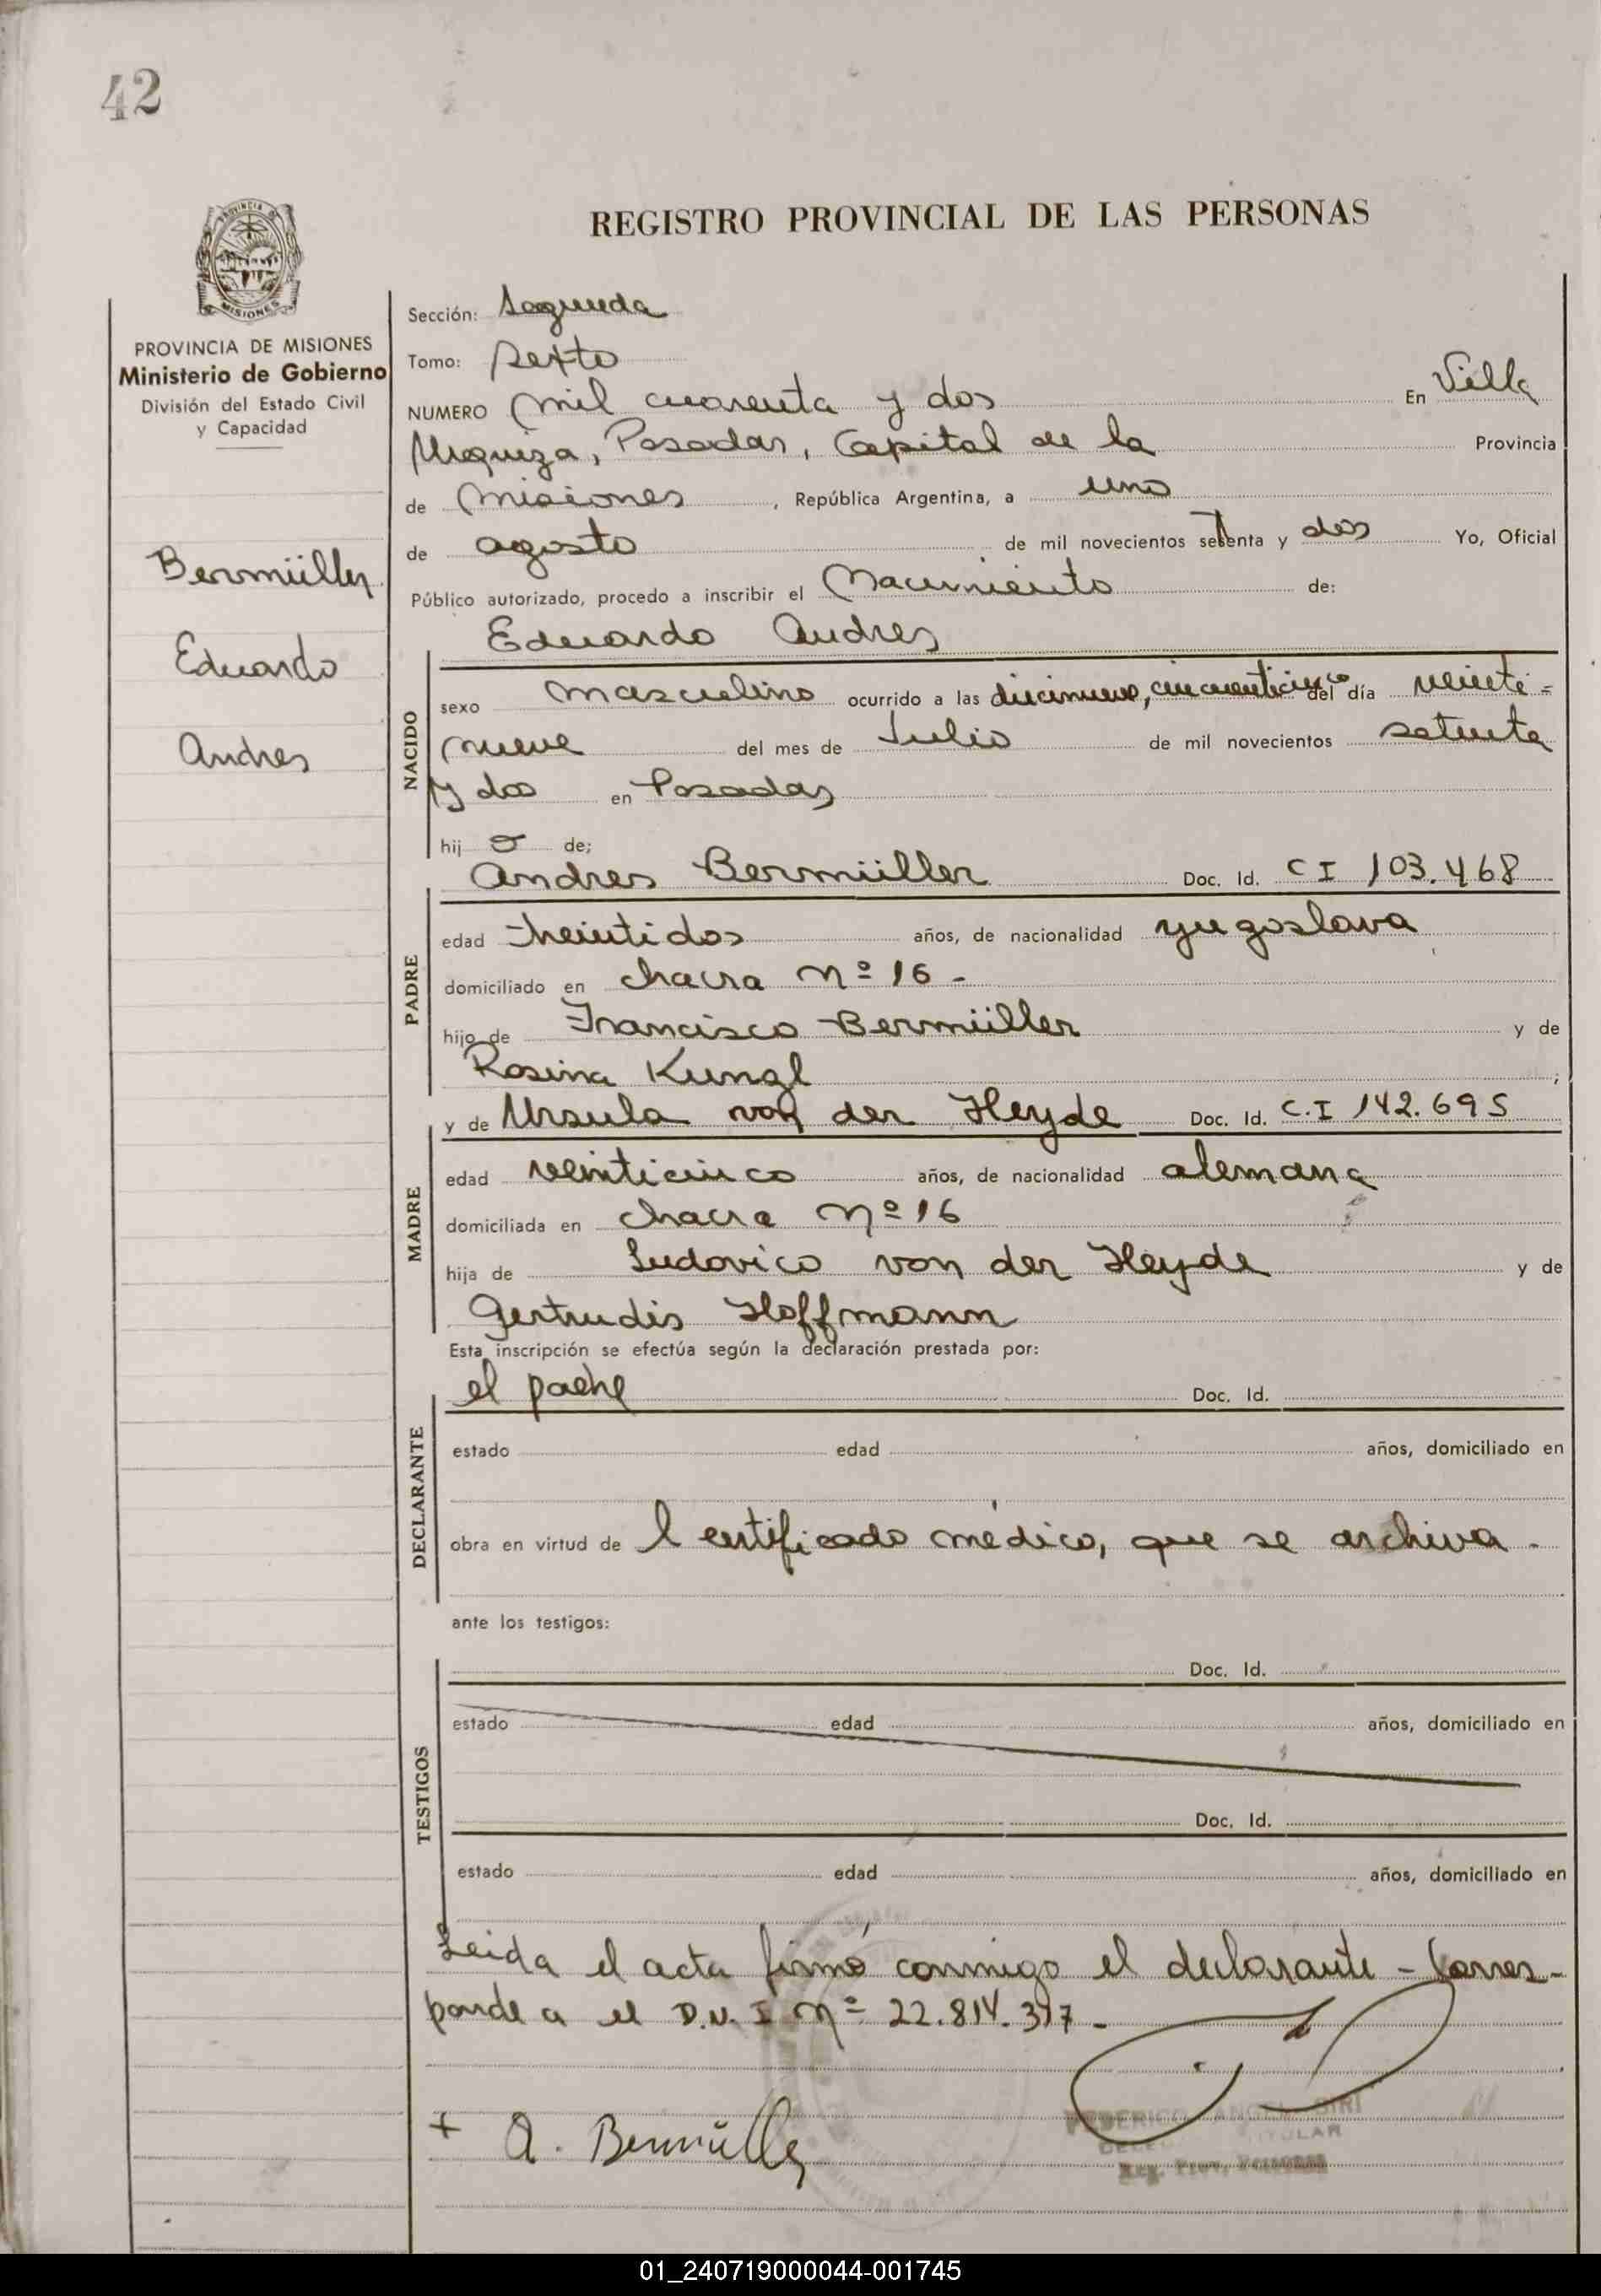 42
REGISTRO PROVINCIAL DE LAS PERSONAS
PROVINCIA DE
MISIONES
PROVINCIA DE MISIONES
Ministerio de Gobierno
División del Estado Civil
y Capacidad
Bermüller
Eduardo
Andres
Sección: Segunda
Tomo: Sexto
NUMERO Mil cuarenta y dos En Villa
Urquiza, Posadas, Capital de la Provincia
de Misiones, República Argentina, a uno
de agosto de mil novecientos setenta y dos Yo, Oficial
Público autorizado, procedo a inscribir el Nacimiento de:
Eduardo Andres
NACIDO
sexo masculino ocurrido a las diecinueve, cincuenticinco del día veinte=
nueve del mes de Julio de mil novecientos setenta
y dos en Posadas
hijo de;
Andres Bermüller Doc. Id. CI 103.468
PADRE
edad treintidos años, de nacionalidad yugoslava
domiciliado en chacra Nº 16-
hijo de Francisco Bermüller y de
Rosina Kungl;
y de Ursula von der Heyde Doc. Id. C.I 142.695
MADRE
edad veinticinco años, de nacionalidad alemana
domiciliada en chacra Nº 16
hija de Ludovico von der Heyde y de
Gertrudis Hoffmann
Esta inscripción se efectúa según la declaración prestada por:
el padre Doc. Id.
DECLARANTE
estado edad años, domiciliado en
obra en virtud de l certificado médico, que se archiva.
ante los testigos:
Doc. Id.
TESTIGOS
estado edad años, domiciliado en
Doc. Id.
estado edad años, domiciliado en
Leida el acta firmó conmigo el declarante - Corres-
ponde a el D.N.I Nº 22.814.317-
+ A. Bermüller
FEDERICO ANGEL SIRI
TITULAR
Reg. Prov. Personas
01_240719000044-001745